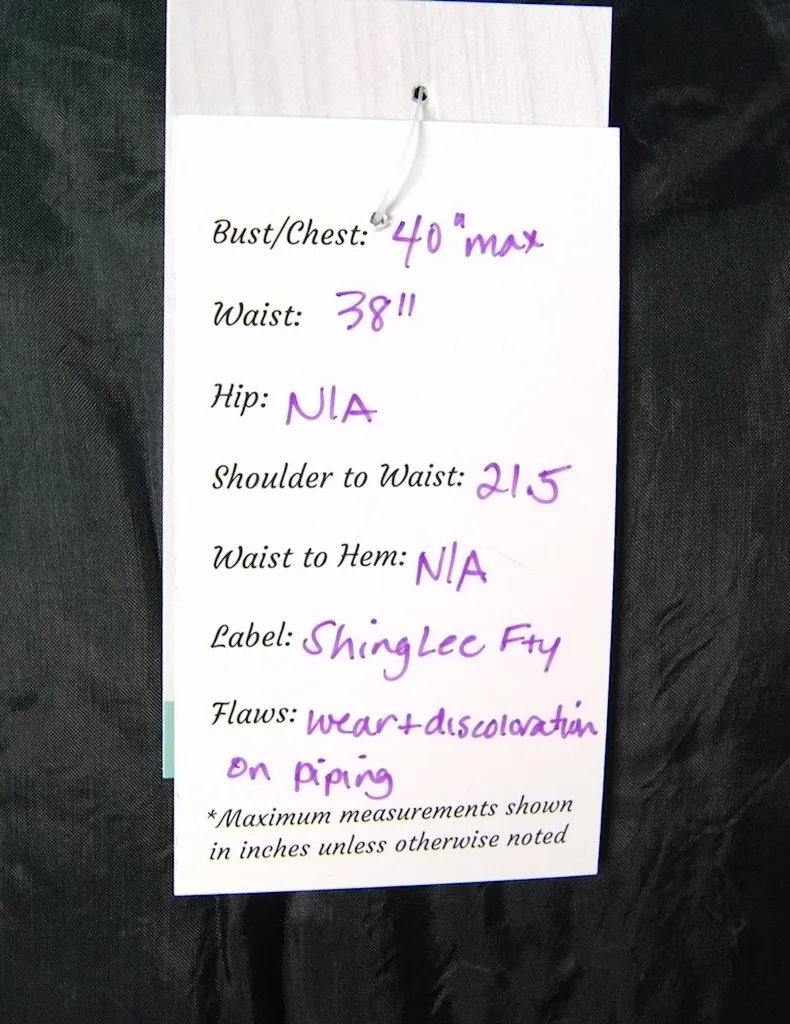 Bust/Chest: 40" max
Waist: 38"
Hip: N/A
Shoulder to Waist: 21.5
Waist to Hem: N/A
Label: ShingLee Fty
Flaws: wear + discoloration
on piping
*Maximum measurements shown
in inches unless otherwise noted